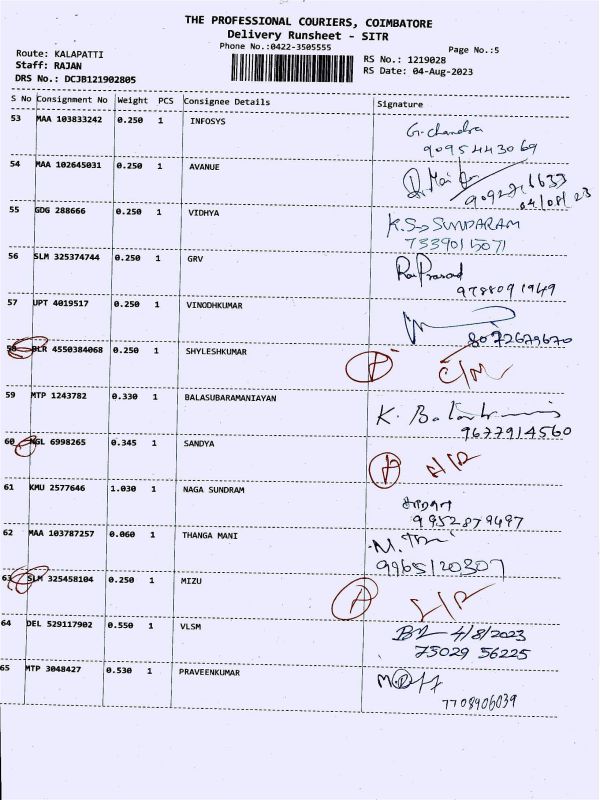 THE PROFESSIONAL COURIERS, COIMBATORE
Delivery Runsheet - SITR
Phone No.:0422-3505555
Page No.:5
Route: KALAPATTI
Staff: RAJAN
DRS No.: DCJB121902805
RS No.: 1219028
RS Date: 04-Aug-2023
S No Consignment No Weight PCS Consignee Details Signature
53 MAA 103833242 0.250 1 INFOSYS
G. Chandra
9095443069
54 MAA 102645031 0.250 1 AVANUE
04/08/23
55 GDG 288666 0.250 1 VIDHYA
K.S. SUNDARAM
7339015071
56 SLM 325374744 0.250 1 GRV
RamPrasad
9788091949
57 UPT 4019517 0.250 1 VINODHKUMAR
8072679670
58 BLR 4550384068 0.250 1 SHYLESHKUMAR
C/M
59 MTP 1243782 0.330 1 BALASUBARAMANIAYAN
K.
9677914560
60 NGL 6998265 0.345 1 SANDYA
61 KMU 2577646 1.030 1 NAGA SUNDRAM
9952879497
62 MAA 103787257 0.060 1 THANGA MANI
9965120307
63 SLM 325458104 0.250 1 MIZU
64 DEL 529117902 0.550 1 VLSM
4/8/2023
75029 56225
65 MTP 3048427 0.530 1 PRAVEENKUMAR
7708906039